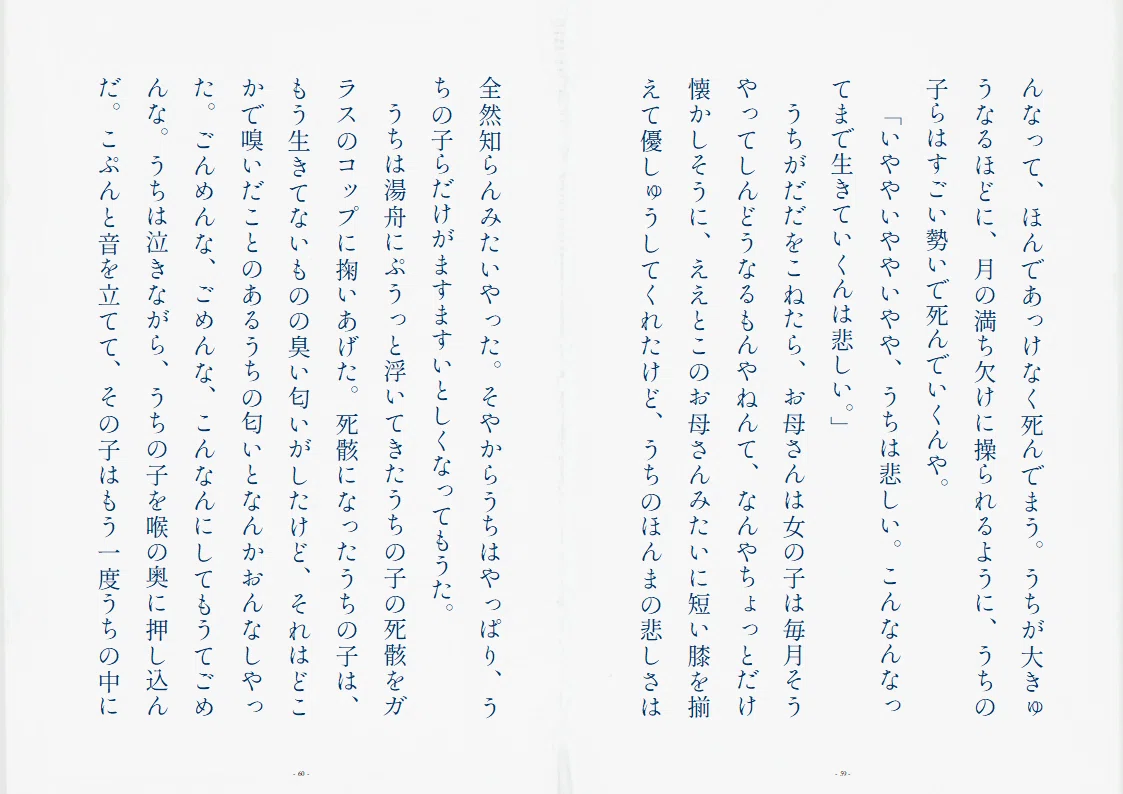 んなって、ほんであっけなく死んでまう。うちが大きゅ
うなるほどに、月の満ち欠けに操られるように、うちの
子らはすごい勢いで死んでいくんや。
「いややいややいやや、うちは悲しい。こんなんなっ
てまで生きていくんは悲しい。」
うちがだだをこねたら、お母さんは女の子は毎月そう
やってしんどうなるもんやねんて、なんやちょっとだけ
懐かしそうに、ええとこのお母さんみたいに短い膝を揃
えて優しゅうしてくれたけど、うちのほんまの悲しさは
- 59 -
全然知らんみたいやった。そやからうちはやっぱり、う
ちの子らだけがますますいとしくなってもうた。
うちは湯舟にぷうっと浮いてきたうちの子の死骸をガ
ラスのコップに掬いあげた。死骸になったうちの子は、
もう生きてないものの臭い匂いがしたけど、それはどこ
かで嗅いだことのあるうちの匂いとなんかおんなしやっ
た。ごんめんな、ごめんな、こんなんにしてもうてごめ
んな。うちは泣きながら、うちの子を喉の奥に押し込ん
だ。こぷんと音を立てて、その子はもう一度うちの中に
- 60 -